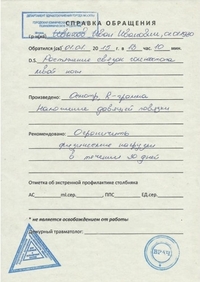 СПРАВКА ОБРАЩЕНИЯ
Иван Иванович,
Обратился (ась) 20 15 г. в 13 час. 10 мин.
D.S. Растяжение связок голеностопа
левой ноги
Произведено: Осмотр, R-графия
Наложение давящей повязки
Рекомендовано: Ограничить
физические нагрузки
в течение 30 дней
Отметка об экстренной профилактике столбняка
АС мл.сер. , ППС ЕД.сер.
* не является освобождением от работы
Дежурный травматолог:
ВРАЧ